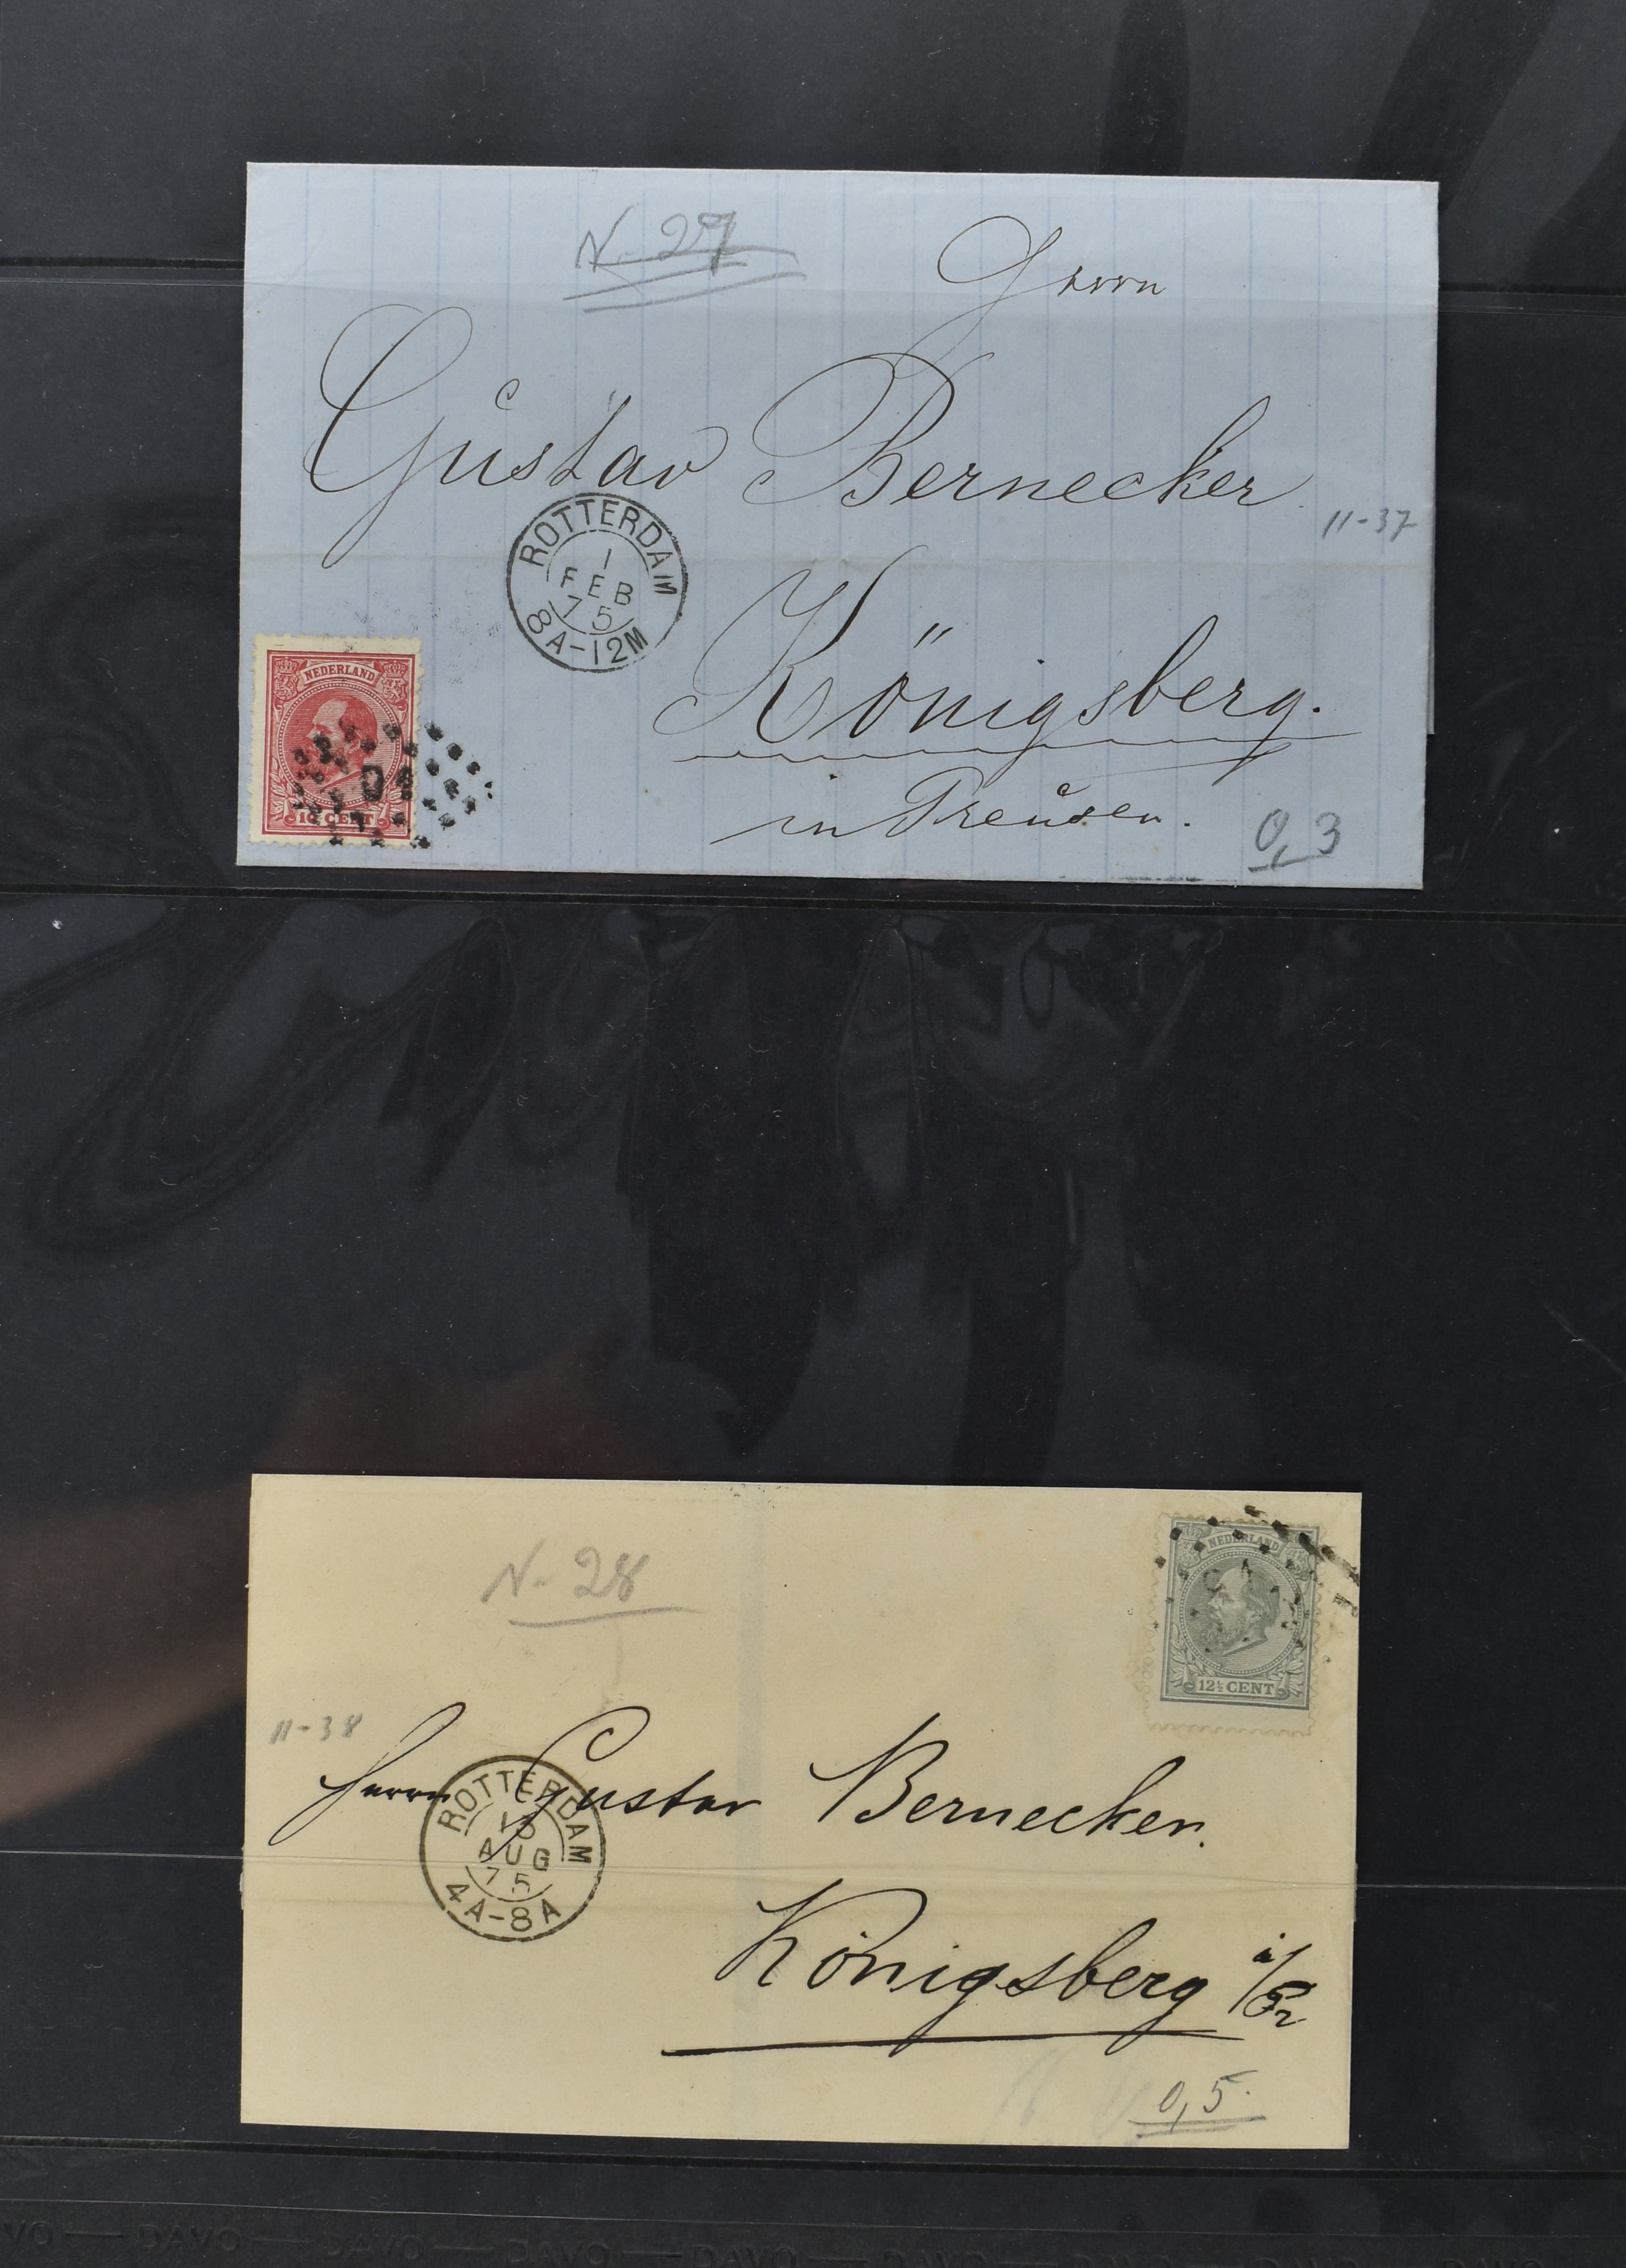 N. 27
Herrn
Gustav Bernecker
11-37
ROTTERDAM
1
FEB
75
8A-12M
Königsberg.
in Preusen.
0,3
NEDERLAND
10 CENT
N. 28
NEDERLAND
12½ CENT
11-38
Herrn Gustav Bernecker.
ROTTERDAM
AUG
75
4A-8A
Königsberg i/Pr
0,5
DAVO DAVO DAVO DAVO DAVO DAVO